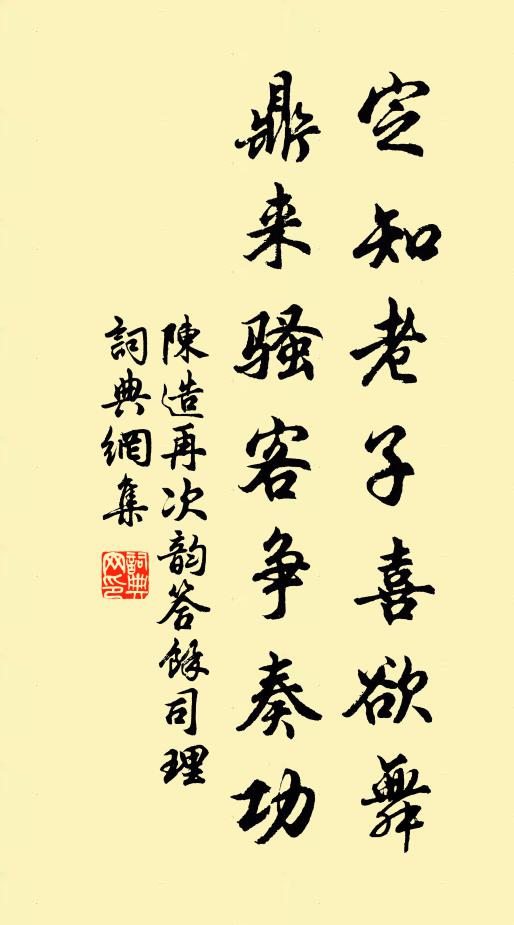 定知老子喜欲舞
鼎来骚客争奏功
陳造再次韵答餘司理
詞典網集
詞典
网印